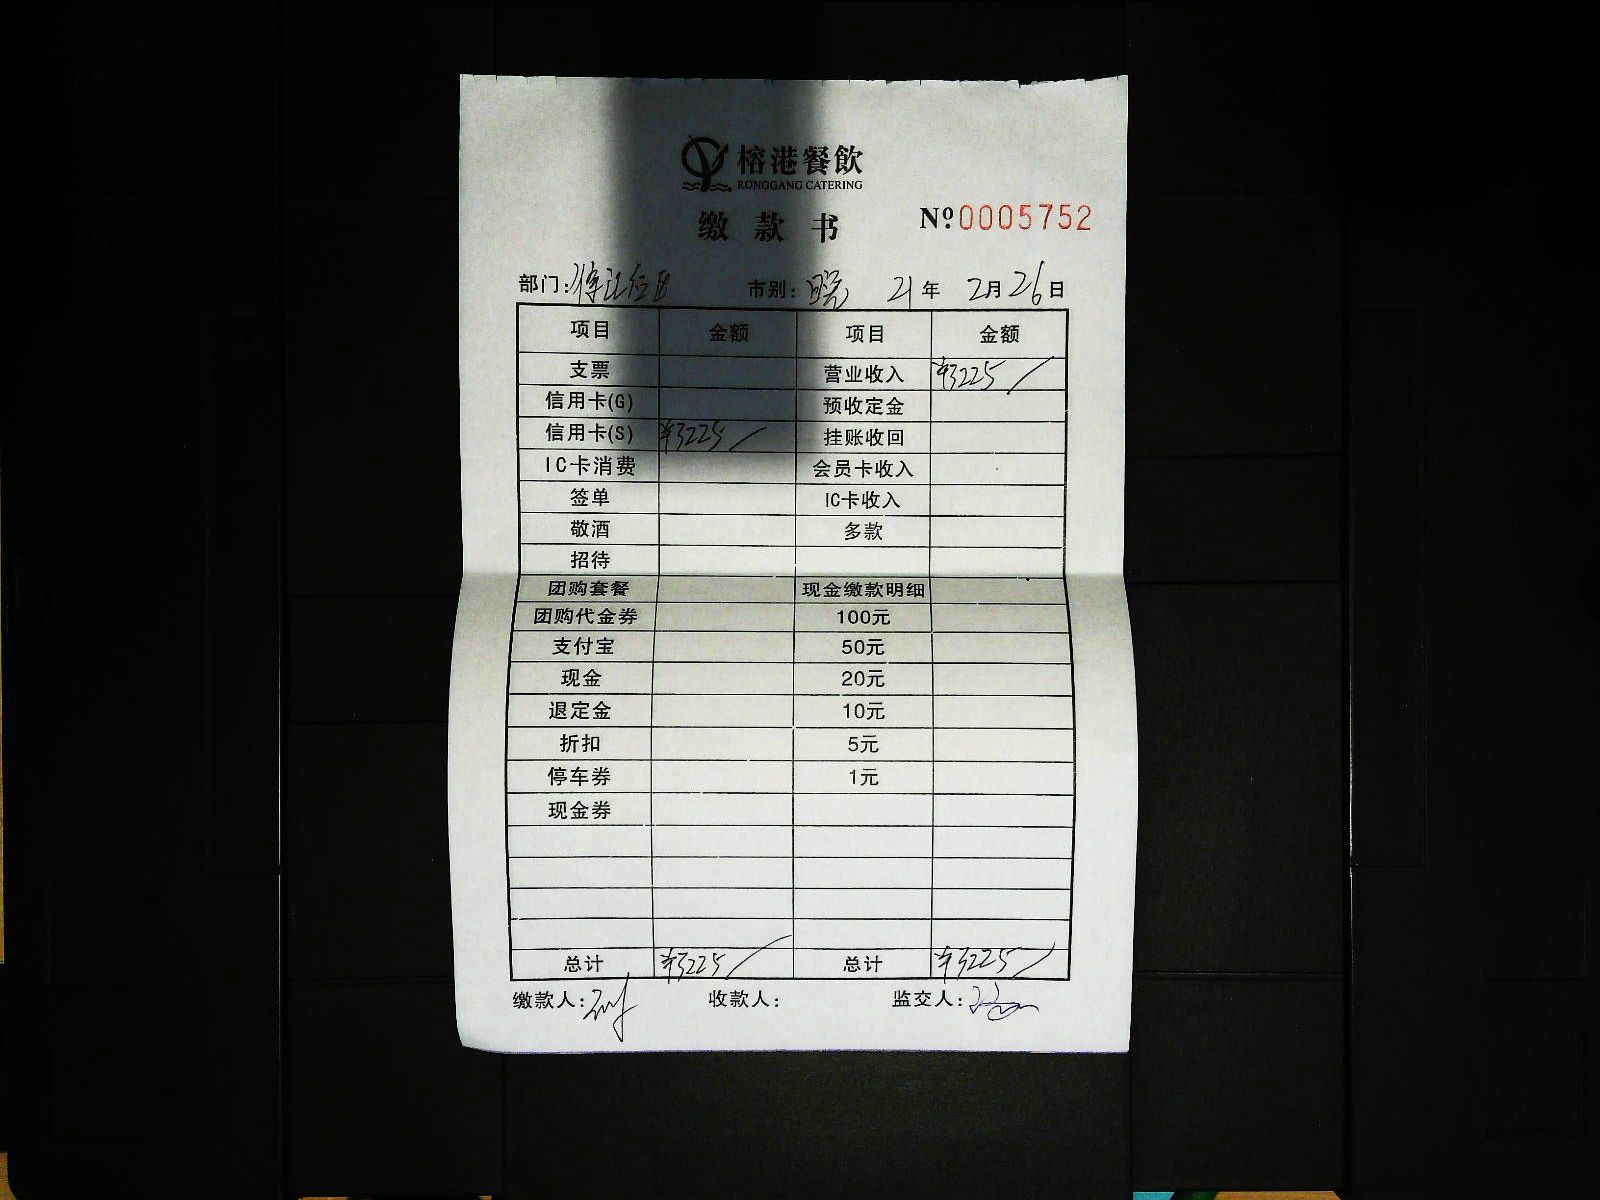 榕港餐飲
RONGGANG CATERING
缴款书 №0005752
部门: 市别: 晚 21年 2月26日
项目 金额 项目 金额
支票 营业收入 ¥3225
信用卡(G) 预收定金
信用卡(S) ¥3225 挂账收回
IC卡消费 会员卡收入
签单 IC卡收入
敬酒 多款
招待
团购套餐 现金缴款明细
团购代金券 100元
支付宝 50元
现金 20元
退定金 10元
折扣 5元
停车券 1元
现金券
总计 ¥3225 总计 ¥3225
缴款人: 收款人: 监交人: